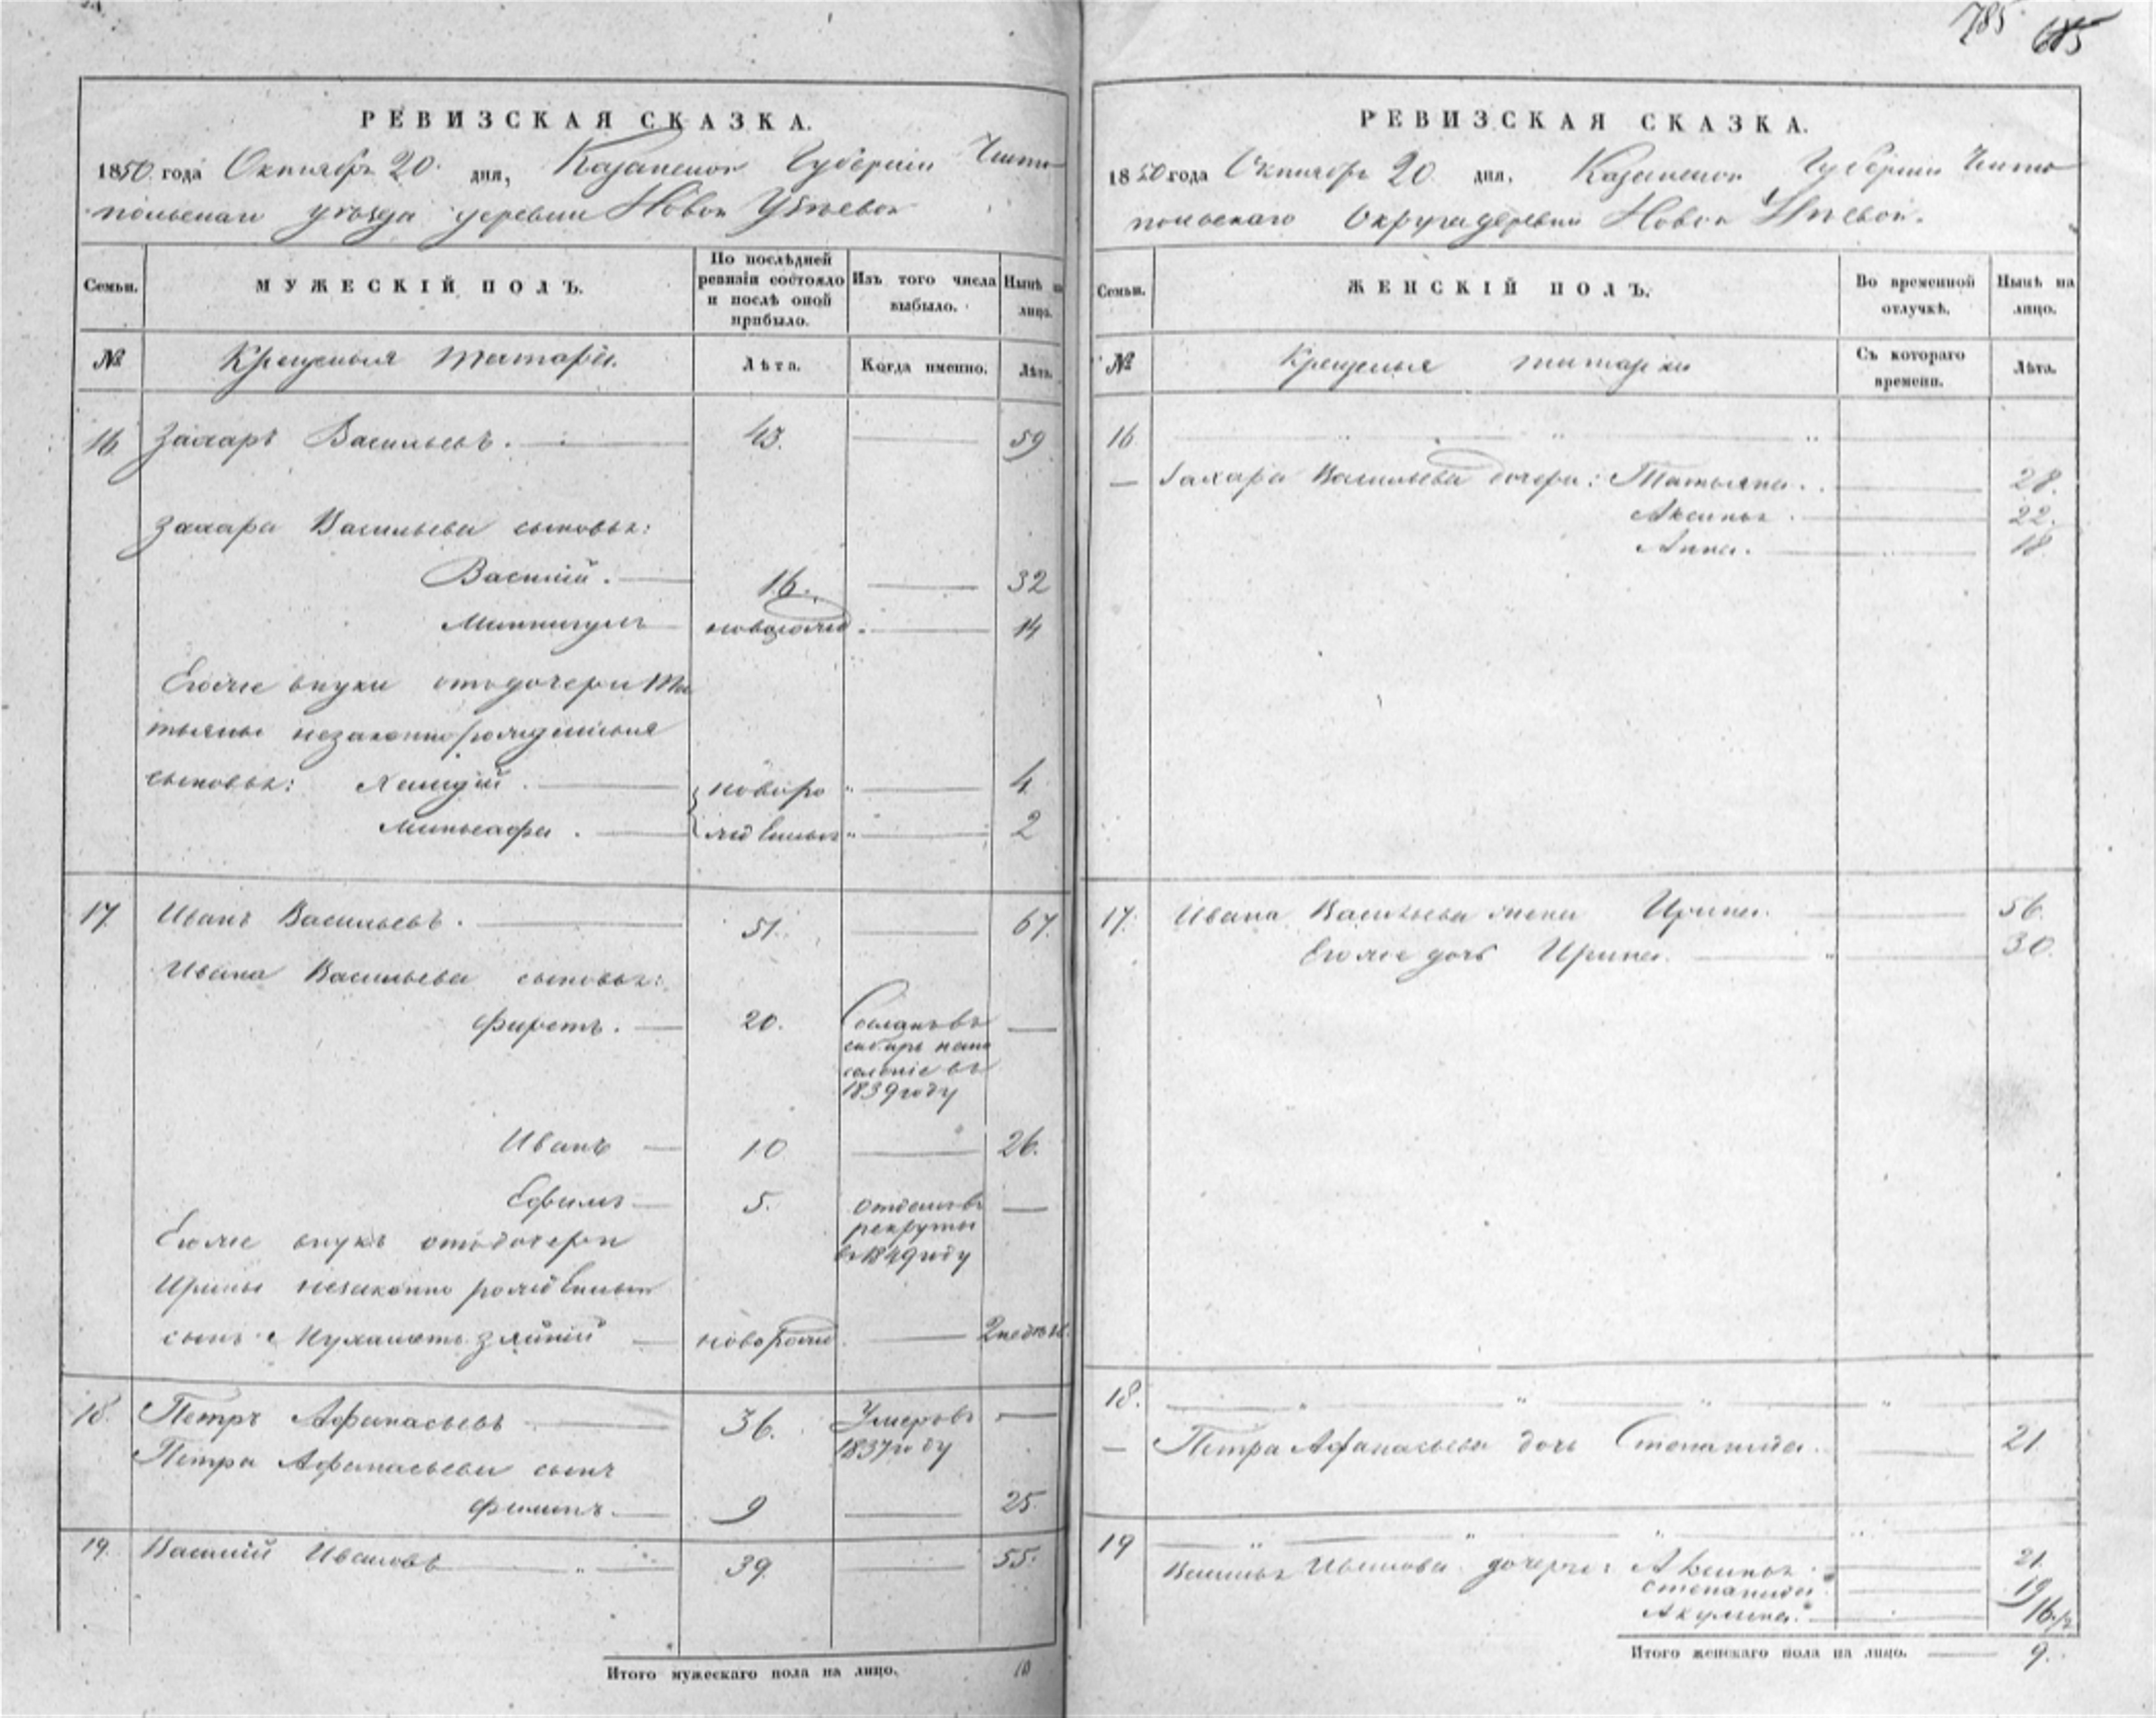 785 685
РЕВИЗСКАЯ СКАЗКА.
1850 года Октября 20 дня, Казанской Губернии Чисто
польскаго уѣзда деревни Новой
Семьи.
МУЖЕСКІЙ ПОЛЪ.
По послѣдней
ревизіи состояло
и послѣ оной
прибыло.
Изъ того числа
выбыло.
Нынѣ на
лицо.
№
Крещеныя татары.
Лѣта.
Когда именно.
Лѣта.
16 Захаръ Васильевъ. 43. 59
Захара Васильева сыновья:
Василій. 16. 32
Миннигулъ новорожд. 14
Егоже внуки отъ дочери Та
тьяны незаконно рожденныя
сыновья: новоро 4
жденныя 2
17 Иванъ Васильевъ. 51. 67.
Ивана Васильева сыновья:
20. Сосланъ въ
сибирь на по
селеніе въ
1839 году
Иванъ 10 26.
Ефимъ 5. отданъ въ
рекруты
въ 1849 году
Егоже внукъ отъ дочери
Ирины незаконно рожденный
сынъ новорожд. 2 недѣли.
18. Петръ Афанасьевъ 36. Умеръ въ
1837 году
Петра Афанасьева сынъ
Филипъ. 9 25.
19. Василій Ивановъ 39. 55.
Итого мужескаго пола на лицо. 10
РЕВИЗСКАЯ СКАЗКА.
1850 года Октября 20 дня. Казанской Губерніи Чисто
польскаго Округа деревни Новой
Семьи.
ЖЕНСКІЙ ПОЛЪ.
Во временной
отлучкѣ.
Нынѣ на
лицо.
№
Крещеныя татарки
Съ котораго
времени.
Лѣта.
16
Захара Васильева дочери: Татьяна. 28.
Аксинья 22.
Анна. 18
17. Ивана Васильева жена Ирина. 56.
Егоже дочь Ирина. 30.
18.
Петра Афанасьева дочь Степанида. 21
19
Василья Иванова дочери: Аксинья 21.
Степанида 19
Акулина. 16
Итого женскаго пола на лицо. 9.